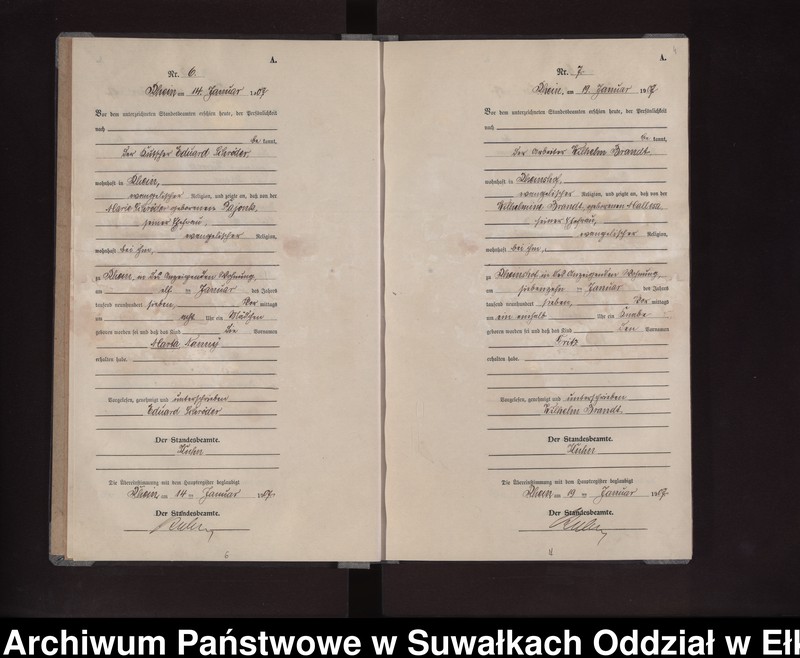 A.
Nr. 6.
Rhein am 14. Januar 1907
Vor dem unterzeichneten Standesbeamten erschien heute, der Persönlichkeit
nach
be kannt,
der Kutscher Eduard Schröder
wohnhaft in Rhein,
evangelischer Religion, und zeigte an, daß von der
Marie Schröder geborenen
seiner Ehefrau,
evangelischer Religion,
wohnhaft bei ihm,
zu Rhein, in des Anzeigenden Wohnung,
am elf ten Januar des Jahres
tausend neunhundert sieben Vor mittags
um acht Uhr ein Mädchen
geboren worden sei und daß das Kind die Vornamen
Marta
erhalten habe.
Vorgelesen, genehmigt und unterschrieben
Eduard Schröder
Der Standesbeamte.
Die Übereinstimmung mit dem Hauptregister beglaubigt
Rhein am 14 ten Januar 1907
Der Standesbeamte.
6
A.
Nr. 7.
Rhein, am 19. Januar 1907
Vor dem unterzeichneten Standesbeamten erschien heute, der Persönlichkeit
nach
be kannt,
der Arbeiter Wilhelm Brandt,
wohnhaft in Rheinshof,
evangelischer Religion, und zeigte an, daß von der
Wilhelmine Brandt, geborenen
seiner Ehefrau,
evangelischer Religion,
wohnhaft bei ihm,
zu Rheinshof in des Anzeigenden Wohnung,
am siebenzehn ten Januar des Jahres
tausend neunhundert sieben, Vor mittags
um ein einhalb Uhr ein Knabe
geboren worden sei und daß das Kind den Vornamen
Fritz
erhalten habe.
Vorgelesen, genehmigt und unterschrieben
Wilhelm Brandt.
Der Standesbeamte.
Die Übereinstimmung mit dem Hauptregister beglaubigt
Rhein am 19 ten Januar 1907
Der Standesbeamte.
Archiwum Państwowe w Suwałkach Oddział w Ełk